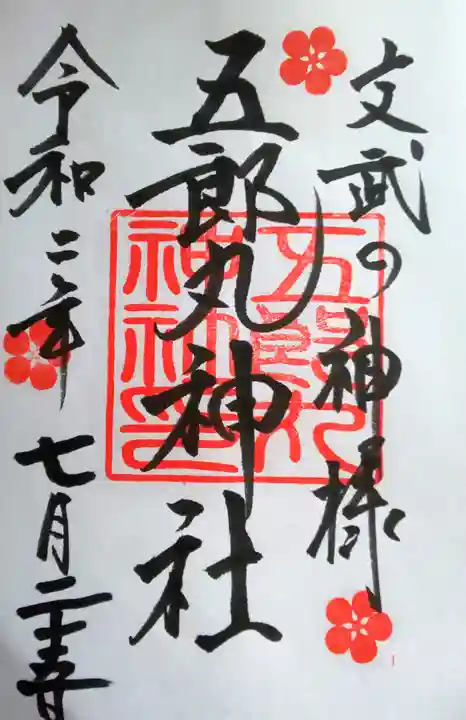 文武の神様
五郎丸神社
令和二年七月二十
五郎丸
神社印